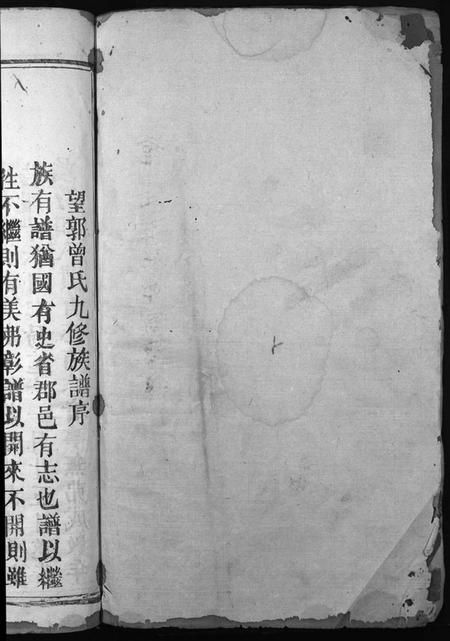 望郭曾氏九修族譜序
族有譜猶國有史省郡邑有志也譜以繼
往不繼則有美弗彰譜以開來不開則雖